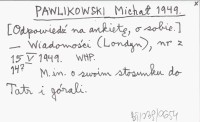 PAWLIKOWSKI Michał 1949.
[Odpowiedź na ankietę, o sobie.]
— Wiadomości (Londyn), nr 2
15 V 1949. WHP.
147
M.in. o swoim stosunku do
Tatr i górali.